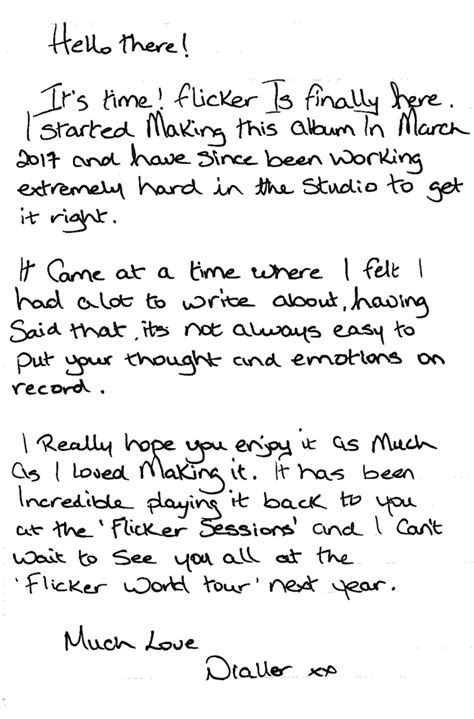 Hello there!
It's time! flicker Is finally here.
I started Making this album In March
2017 and have since been working
extremely hard in the Studio to get
it right.
It Came at a time where I felt I
had alot to write about, having
Said that, its not always easy to
put your thought and emotions on
record.
I Really hope you enjoy it as Much
as I loved Making it. It has been
Incredible playing it back to you
at the 'Flicker Sessions' and I Can't
wait to See you all at the
'Flicker World tour' next year.
Much Love
Nialler xx